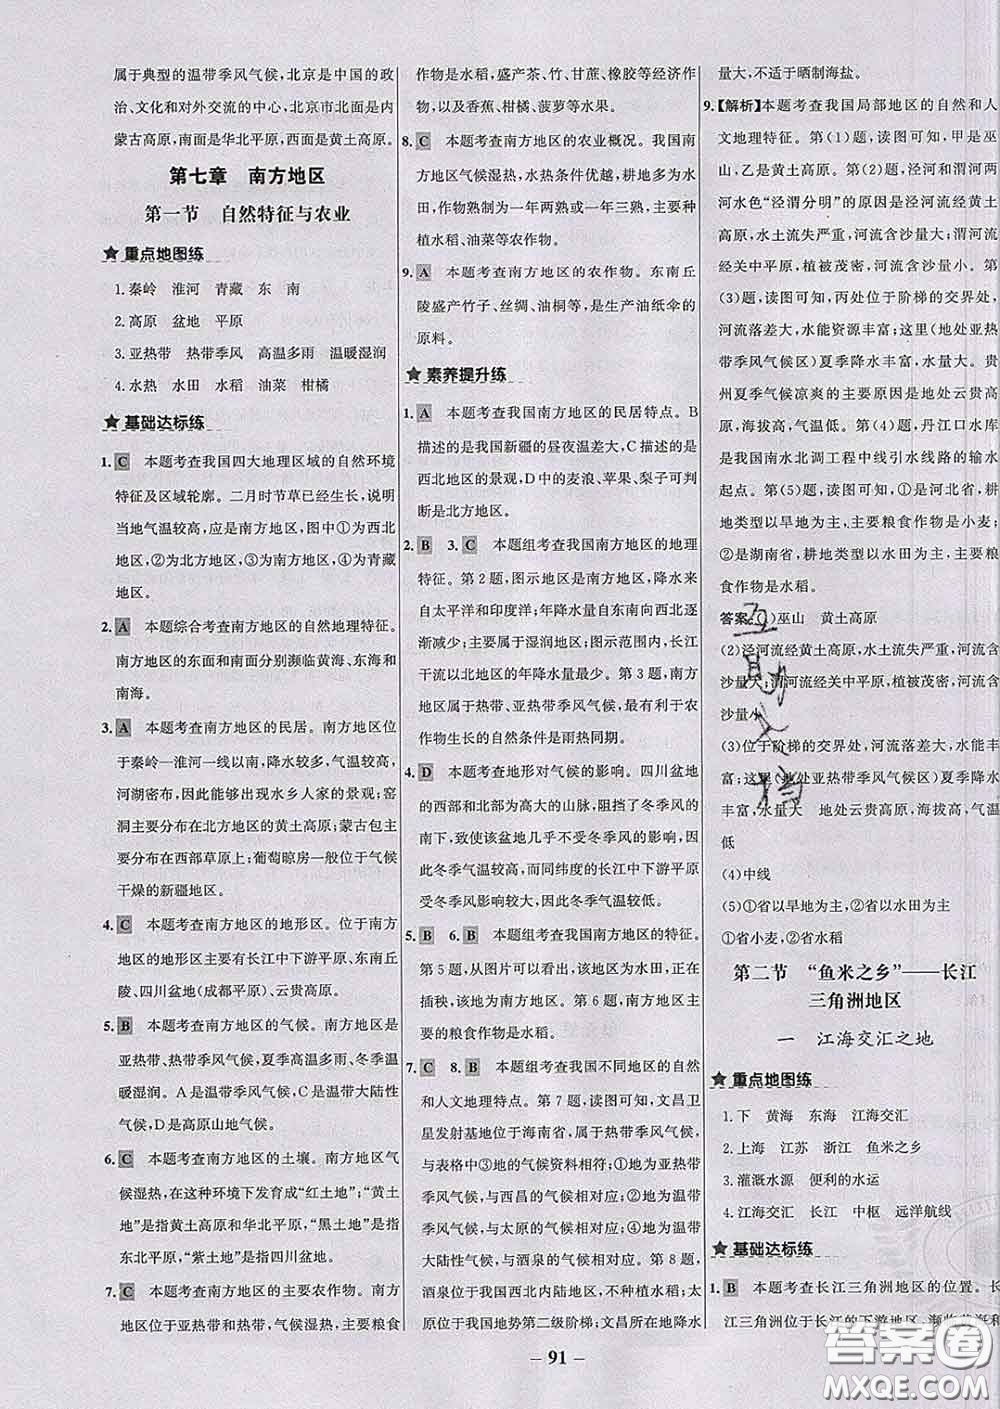 属于典型的温带季风气候，北京是中国的政
治、文化和对外交流的中心，北京市北面是内
蒙古高原，南面是华北平原，西面是黄土高原。
第七章　南方地区
第一节　自然特征与农业
★重点地图练
1.秦岭　淮河　青藏　东　南
2.高原　盆地　平原
3.亚热带　热带季风　高温多雨　温暖湿润
4.水热　水田　水稻　油菜　柑橘
★基础达标练
1. C　本题考查我国四大地理区域的自然环境
特征及区域轮廓。二月时节草已经生长，说明
当地气温较高，应是南方地区，图中①为西北
地区，②为北方地区，③为南方地区，④为青藏
地区。
2. A　本题综合考查南方地区的自然地理特征。
南方地区的东面和南面分别濒临黄海、东海和
南海。
3. A　本题考查南方地区的民居。南方地区位
于秦岭—淮河一线以南，降水较多，气温较高，
河湖密布，因此能够出现水乡人家的景观；窑
洞主要分布在北方地区的黄土高原；蒙古包主
要分布在西部草原上；葡萄晾房一般位于气候
干燥的新疆地区。
4. C　本题考查南方地区的地形区。位于南方
地区的地形区主要有长江中下游平原、东南丘
陵、四川盆地(成都平原)、云贵高原。
5. B　本题考查南方地区的气候。南方地区是
亚热带、热带季风气候，夏季高温多雨、冬季温
暖湿润。A是温带季风气候，B是温带大陆性
气候，D是高原山地气候。
6. C　本题考查南方地区的土壤。南方地区气
候湿热，在这种环境下发育成“红土地”；“黄土
地”是指黄土高原和华北平原，“黑土地”是指
东北平原，“紫土地”是指四川盆地。
7. C　本题考查南方地区的主要农作物。南方
地区位于亚热带和热带地区，主要粮食
作物是水稻，盛产茶、竹、甘蔗、橡胶等经济作
物，以及香蕉、柑橘、菠萝等水果。
8. C　本题考查南方地区的农业概况。我国南
方地区气候湿热，水热条件优越，耕地多为水
田，作物熟制为一年两熟或一年三熟，主要种
植水稻、油菜等农作物。
9. A　本题考查南方地区的农作物。东南丘
陵盛产竹子、丝绸、油桐等，是生产油纸伞的
原料。
★素养提升练
1. A　本题考查我国南方地区的民居特点。B
描述的是我国新疆的昼夜温差大，C描述的是
西北地区的景观，D中的麦浪、苹果、梨子可判
断是北方地区。
2. B　3. C　本题组考查我国南方地区的地理
特征。第2题，图示地区是南方地区，降水来
自太平洋和印度洋；年降水量自东南向西北逐
渐减少；主要属于湿润地区；图示范围内，长江
干流以北地区的年降水量最少。第3题，南方
地区属于热带、亚热带季风气候，最有利于农
作物生长的自然条件是雨热同期。
4. D　本题考查地形对气候的影响。四川盆地
的西部和北部为高大的山脉，阻挡了冬季风的
南下，致使该盆地几乎不受冬季风的影响，因
此冬季气温较高，而同纬度的长江中下游平原
受冬季风的影响较大，因此冬季气温较低。
5. B　6. B　本题组考查我国南方地区的特征。
第5题，从图片可以看出，该地区为水田，正在
插秧，该地为南方地区。第6题，南方地区主
要的粮食作物是水稻。
7. C　8. B　本题组考查我国不同地区的自然
和人文地理特点。第7题，读图可知，文昌卫
星发射基地位于海南省，属于热带季风气候，
与表格中③地的气候资料相符；①地为亚热带
季风气候，与西昌的气候相对应；②地为温带
季风气候，与太原的气候相对应；④地为温带
大陆性气候，与酒泉的气候相对应。第8题，
酒泉位于我国西北内陆地区，不种植水稻；太
原位于我国地势第二级阶梯；文昌所在地降水
量大，不适于晒制海盐。
9.【解析】本题考查我国局部地区的自然和人
文地理特征。第(1)题，读图可知，甲是巫
山，乙是黄土高原。第(2)题，泾河和渭河两
河水色“泾渭分明”的原因是泾河流经黄土
高原，水土流失严重，河流含沙量大；渭河流
经关中平原，植被茂密，河流含沙量小。第
(3)题，读图可知，丙处位于阶梯的交界处，
河流落差大，水能资源丰富；这里(地处亚热
带季风气候区)夏季降水丰富，水量大。贵
州夏季气候凉爽的主要原因是地处云贵高
原，海拔高，气温低。第(4)题，丹江口水库
是我国南水北调工程中线引水线路的输水
起点。第(5)题，读图可知，①是河北省，耕
地类型以旱地为主，主要粮食作物是小麦；
②是湖南省，耕地类型以水田为主，主要粮
食作物是水稻。
答案：(1)巫山　黄土高原
(2)泾河流经黄土高原，水土流失严重，河流含
沙量大；渭河流经关中平原，植被茂密，河流含
沙量小
(3)位于阶梯的交界处，河流落差大，水能丰
富；这里(地处亚热带季风气候区)夏季降水
丰富，水量大　地处云贵高原，海拔高，气温
低
(4)中线
(5)①省以旱地为主，②省以水田为主
①省小麦，②省水稻
第二节　“鱼米之乡”——长江
三角洲地区
一　江海交汇之地
★重点地图练
1.下　黄海　东海　江海交汇
2.上海　江苏　浙江　鱼米之乡
3.灌溉水源　便利的水运
4.江海交汇　长江　中枢　远洋航线
★基础达标练
1. B　本题考查长江三角洲地区的位置。长
江三角洲地区位于长江的下游地区，
互助文档
答案圈
MXQE.COM
— 91 —